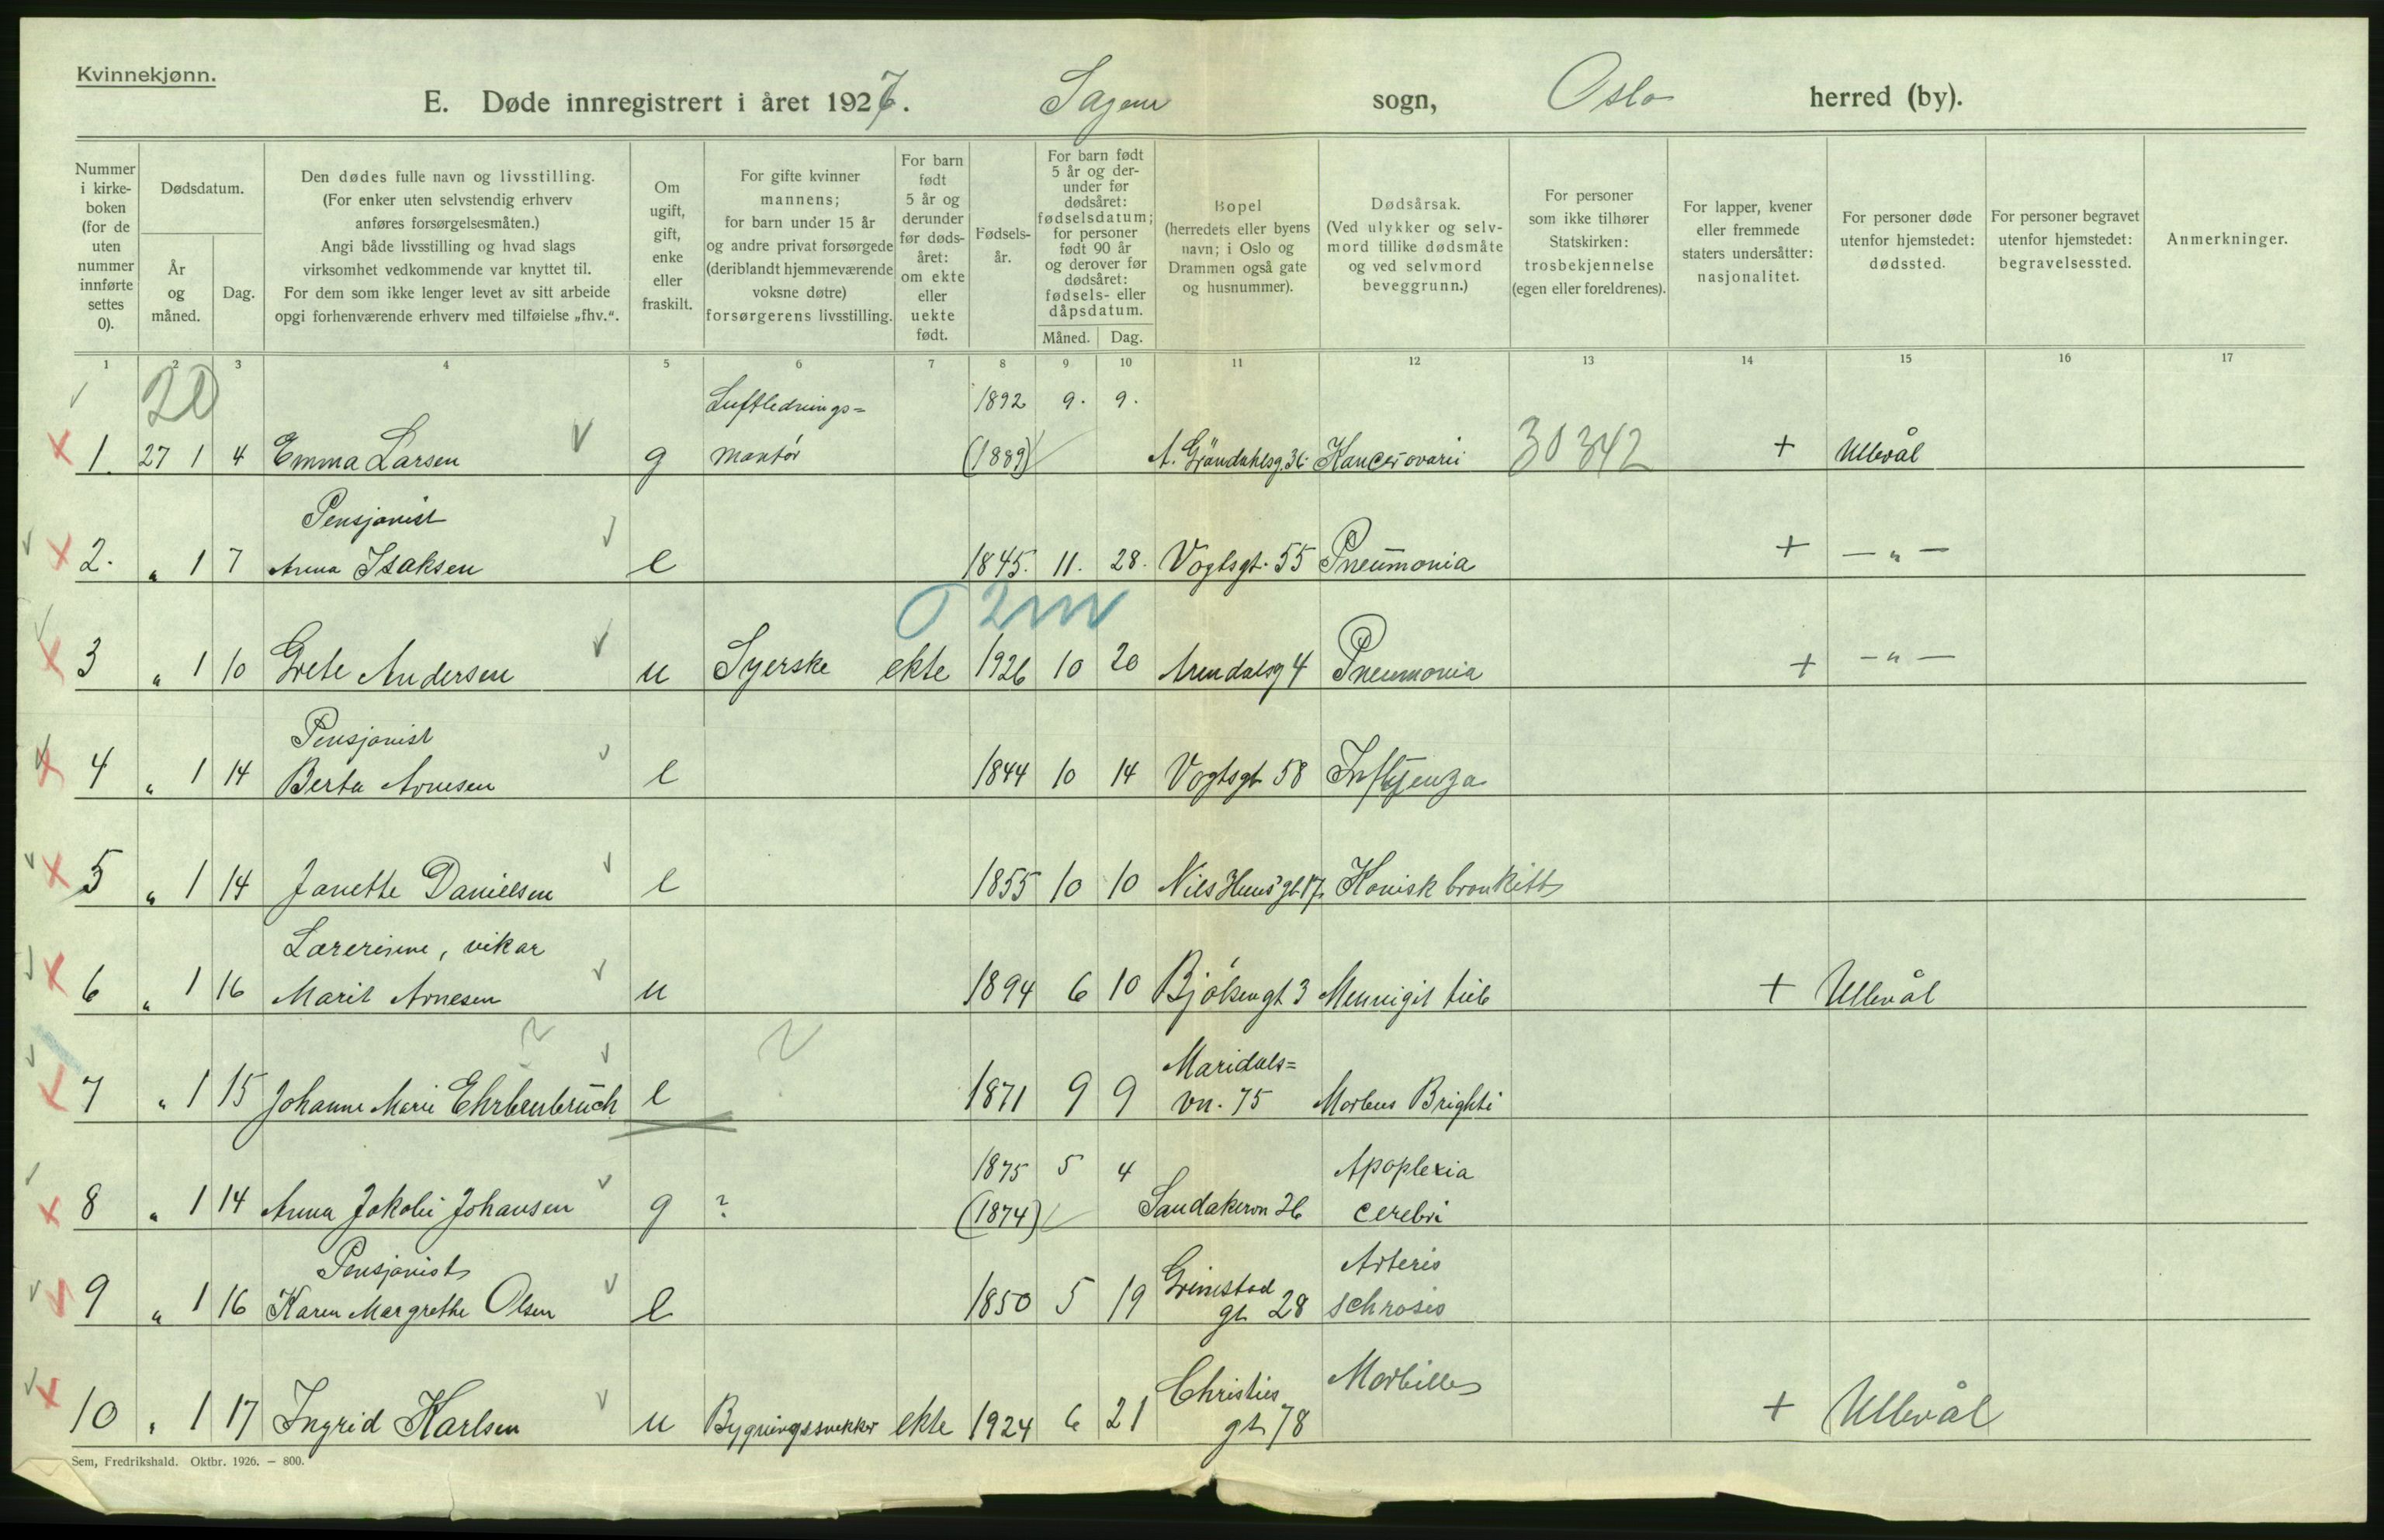 Kvinnekjønn.
E. Døde innregistrert i året 1927. Sagene sogn, Oslo herred (by).
Nummer i kirke- boken (for de uten nummer innførte settes 0).
Dødsdatum.
År og måned.
Dag.
Den dødes fulle navn og livsstilling.
(For enker uten selvstendig erhverv
anføres forsørgelsesmåten.)
Angi både livsstilling og hvad slags
virksomhet vedkommende var knyttet til.
For dem som ikke lenger levet av sitt arbeide
opgi forhenværende erhverv med tilføielse „fhv.“.
Om ugift, gift, enke eller fraskilt.
For gifte kvinner
mannens;
for barn under 15 år
og andre privat forsørgede
(deriblandt hjemmeværende
voksne døtre)
forsørgerens livsstilling.
For barn født 5 år og derunder før døds- året: om ekte eller uekte født.
Fødsels- år.
For barn født 5 år og der- under før dødsåret: fødselsdatum; for personer født 90 år og derover før dødsåret: fødsels- eller dåpsdatum.
Måned. Dag.
Bopel
(herredets eller byens
navn; i Oslo og
Drammen også gate
og husnummer).
Dødsårsak.
(Ved ulykker og selv-
mord tillike dødsmåte
og ved selvmord
beveggrunn.)
For personer
som ikke tilhører
Statskirken:
trosbekjennelse
(egen eller foreldrenes).
For lapper, kvener
eller fremmede
staters undersåtter:
nasjonalitet.
For personer døde
utenfor hjemstedet:
dødssted.
For personer begravet
utenfor hjemstedet:
begravelsessted.
Anmerkninger.
1 2 3 4 5 6 7 8 9 10 11 12 13 14 15 16 17
20
Luftlednings= 1892 9. 9.
1. 27 1 4 Emma Larsen g montör (1889) A. Gröndahlsg 36 Kancer ovarii 30342 + Ullevål
Pensjonist
2. " 1 7 Anna Isaksen e 1845. 11. 28. Vogtsgt. 55 Pneumonia + — " —
0 2 m
3 " 1 10 Grete Andersen u Syerske ekte 1926 10 20 Arendalsg 4 Pneumonia + — " —
Pensjonist
4 " 1 14 Berta Arnesen e 1844 10 14 Vogtsgt 58 Influenza
5 " 1 14 Janette Danielsen e 1855 10 10 Nils Huus' gt 17 Kronisk bronkitt
Lærerinne, vikar
6 " 1 16 Marit Arnesen u 1894 6 10 Bjölsengt 3 Mennigit tub + Ullevål
Maridals=
7 " 1 15 Johanne Marie Ehrbenbruch e 1871 9 9 vn. 75 Morbus Brighti
1875 5 4 Apoplexia
8 " 1 14 Anna Jakobi Johansen g ? (1874) Sandakervn 26 cerebri
Pensjonist Arterio
9 " 1 16 Karen Margrethe Olsen e 1850 5 19 Grimstad gt 28 schrosis
Christies Morbilles
10 " 1 17 Ingrid Karlsen u Bygningssnekker ekte 1924 6 21 gt 78 + Ullevål
Sem, Fredrikshald. Oktbr. 1926. — 800.